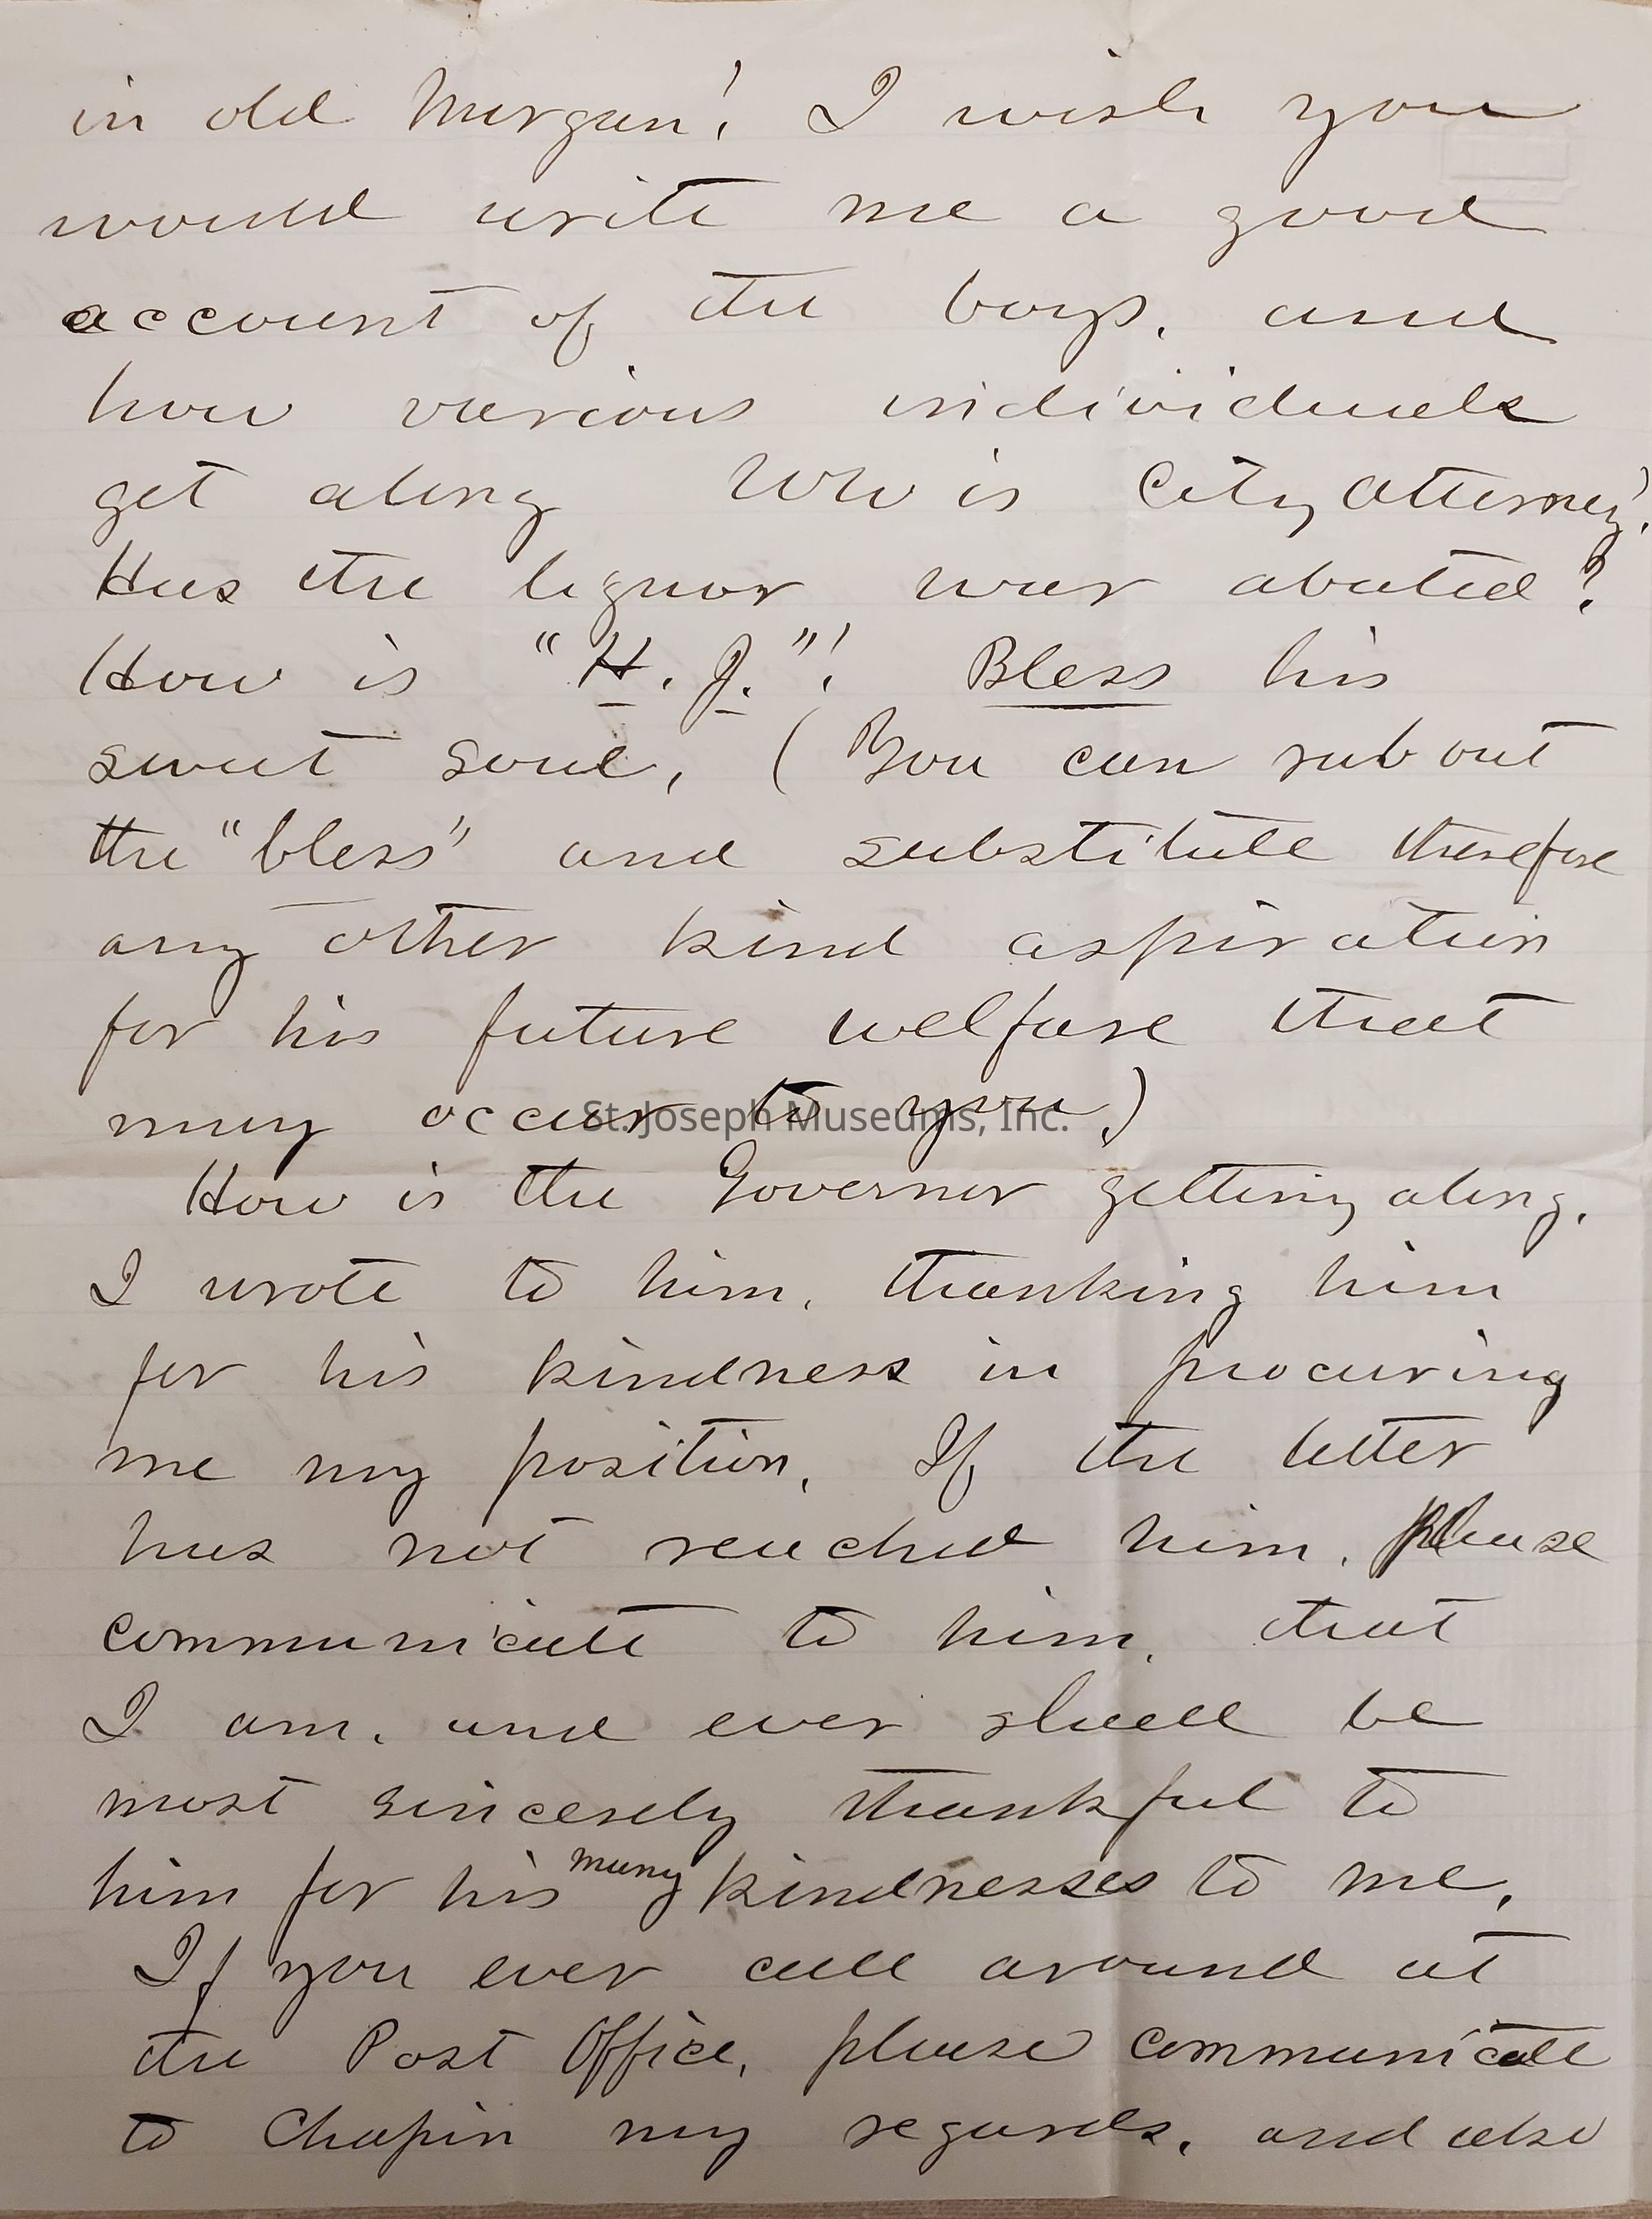 in old Morgan? I wish you
would write me a good
account of the boys, and
how various individuals
get along Who is City Attorney?
Has the liquor war abated?
How is "H. J."? Bless his
sweet soul, (You can rub out
the "bless" and substitute therefore
any other kind aspiration
for his future welfare that
may occur to you.)
St. Joseph Museums, Inc.
How is the Governor getting along.
I wrote to him, thanking him
for his kindness in procuring
me my position, If the letter
has not reached him, please
communicate to him, that
I am, and ever shall be
most sincerely thankful to
him for his many kindnesses to me,
If you ever call around at
the Post Office, please communicate
to Chapin my regards, and also